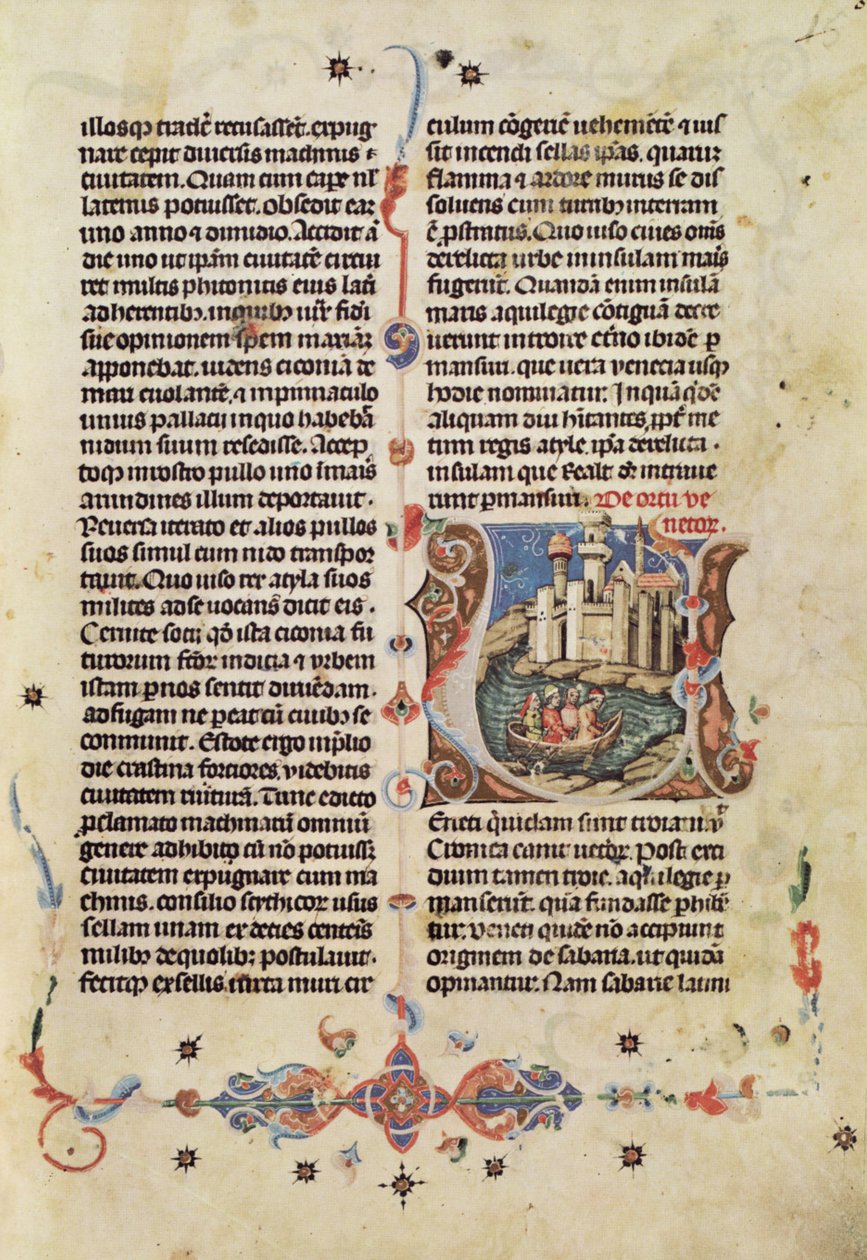 illosq̧ tradeᷣ recusassēt. expug
nare cepit diuersis machinis ⁊
ciuitatem. Quam cum caꝑe nll̄
latenus potuisset. obsedit eaȝ
uno anno ⁊ dimidio. Accidit ā
die uno ut ip̄am ciuitatē circui
ret multis phitonicis eius lat̄i
adherentibȝ. in quibȝ iux̄ fidei
sue opinionem spem maxīaȝ
apponebat. uidens ciconiā de
mari euolantē. ⁊ in pinnaculo
unius pallacii in quo habebā
nidum suum resedisse. Accep
toq̧ in rostro pullo uno īt̄ maīs
arundines illum deportauit.
Reuersa iterato et alios pullos
suos simul cum nido transpor
tauit. Quo uiso rex atyla suos
milites ad se uocans dicit eis.
Cernite socii qđ ista ciconia fu
turorum fert̄ indicia ⁊ vrbem
istam ꝑ nos sentit diruēdam.
ad fugam ne ꝑeat cū ciuibȝ se
communit. Estote ergo in p̄lio
die crastina forciores, ⁊ videbitis
ciuitatem ruiturā. Tunc edicto
ꝓclamato machinarū omniū
genere adhibito cū nō potuissȝ
ciuitatem expugnare cum ma
chinis. consilio scythicoꝝ usus
sellam unam ex decies centēis
milibȝ de quolibȝ postulauit.
fecitq̧ ex sellis iuxta muri cir
culum cōgeriē uehemētē ⁊ ius
sit incendi sellas ip̄as. quarūȝ
flamma ⁊ ardore murus se dis
soluens cum turribȝ in terram
ē ꝓstratus. Quo uiso ciues om̄s
derelicta urbe in insulam maīs
fugerūt. Quandā enim insulā
maris aquilegie cōtiguā decre
uerunt introire et īno ibidē ꝑ
mansiui. que uera venecia usq̧
hodie nominatur. In qua qⁱdē
aliquam diu hītantes, ꝓpt̄ me
tum regis atyle. ip̄a derelicta.
insulam que Realt dȓ intraue
runt ꝑmansuri. De ortu ve
netoꝝ.
Eneti qⁱdam sunt troiani. ut
Cronica canit ueteꝝ. Post exci
dium tamen troie. aquilegie ꝑ
manserūt. quā fundasse ꝑhibē
tur. Veneti quidē nō accipiunt
originem de sabaria. ut quidā
opinantur. Nam sabarie latini